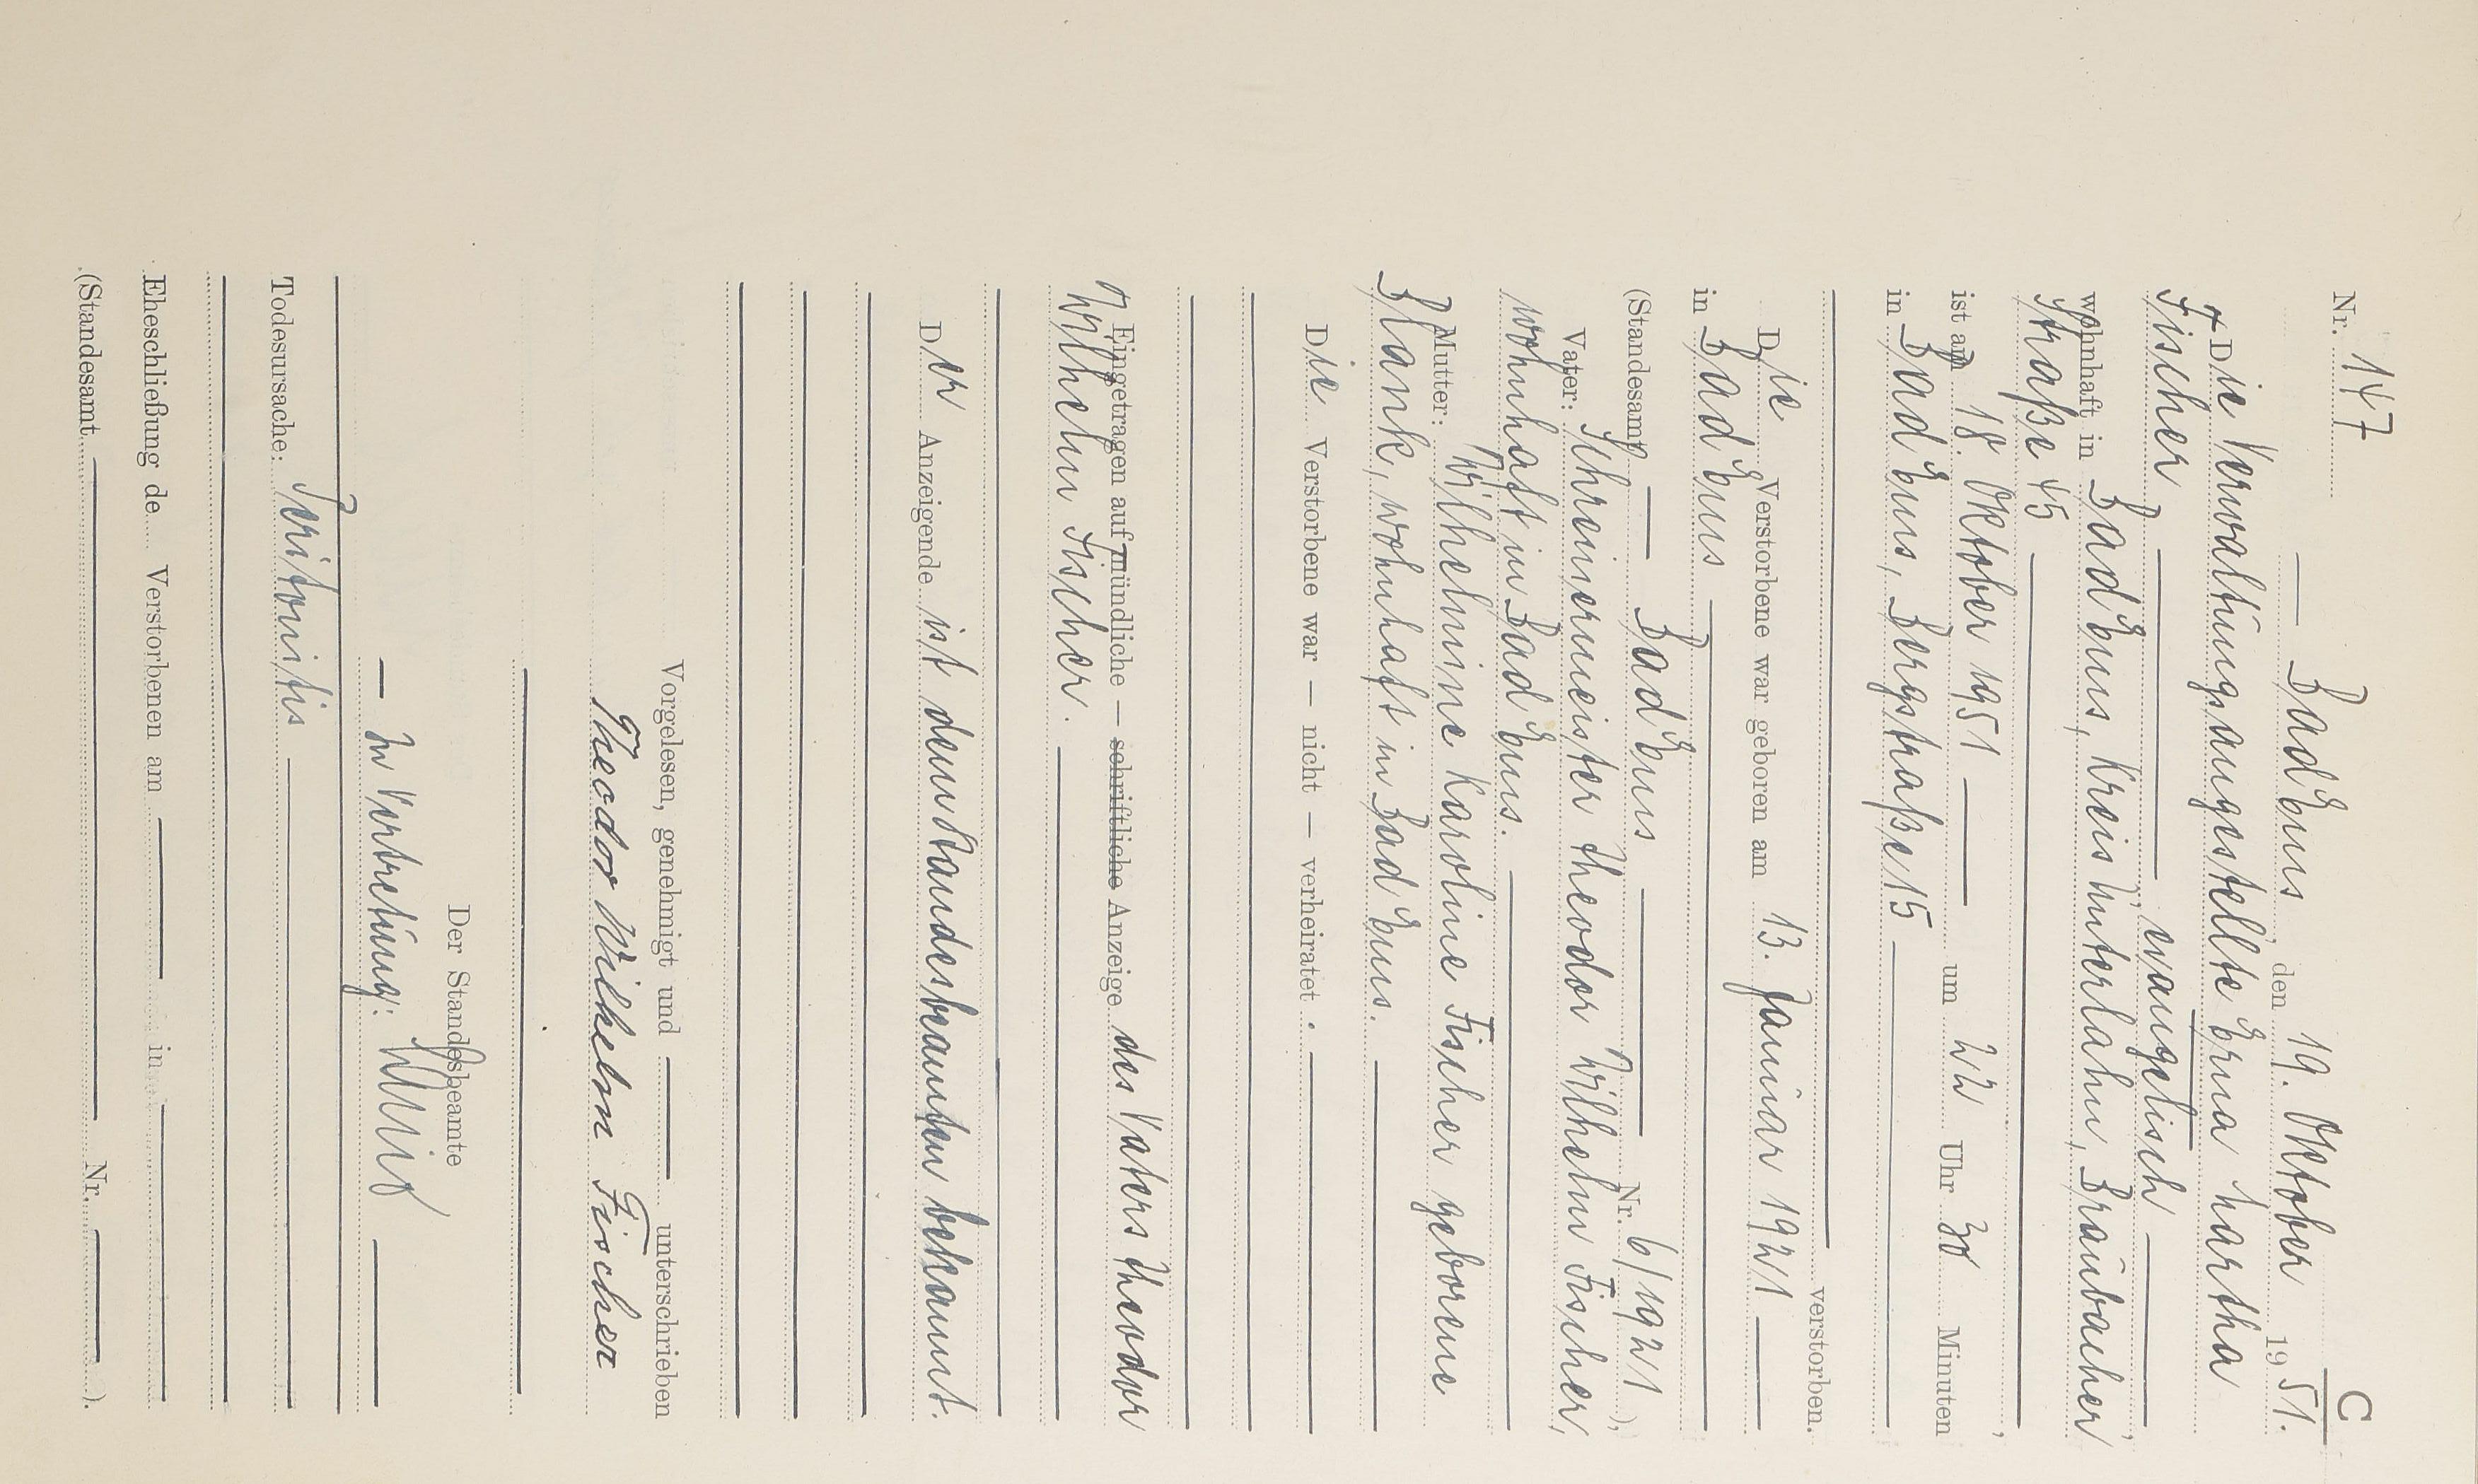 C
Nr. 147
— Bad Ems, den 19. Oktober 1951.
+ Die Verwaltungsangestellte Erna Martha
Fischer — evangelisch —,
wohnhaft in Bad Ems, Kreis Unterlahn, Braubacher
Straße 45 —,
ist am 18. Oktober 1951 — um 22 Uhr 30 Minuten
in Bad Ems, Bergstraße 15 —
— verstorben.
Die Verstorbene war geboren am 13. Januar 1921 —
in Bad Ems —
(Standesamt — Bad Ems — Nr. 6/1921),
Vater: Schreinermeister Theodor Wilhelm Fischer,
wohnhaft in Bad Ems. —
Mutter: Wilhelmine Karoline Fischer geborene
Blank, wohnhaft in Bad Ems. —
Die Verstorbene war — nicht — verheiratet . —
Eingetragen auf mündliche — schriftliche Anzeige des Vaters Theodor
Wilhelm Fischer. —
Der Anzeigende ist dem Standesbeamten bekannt.
Vorgelesen, genehmigt und — unterschrieben
Theodor Wilhelm Fischer
Der Standesbeamte
— In Vertretung: —
Todesursache: Peritonitis —
Eheschließung de Verstorbenen am — in —
(Standesamt — Nr. — ).